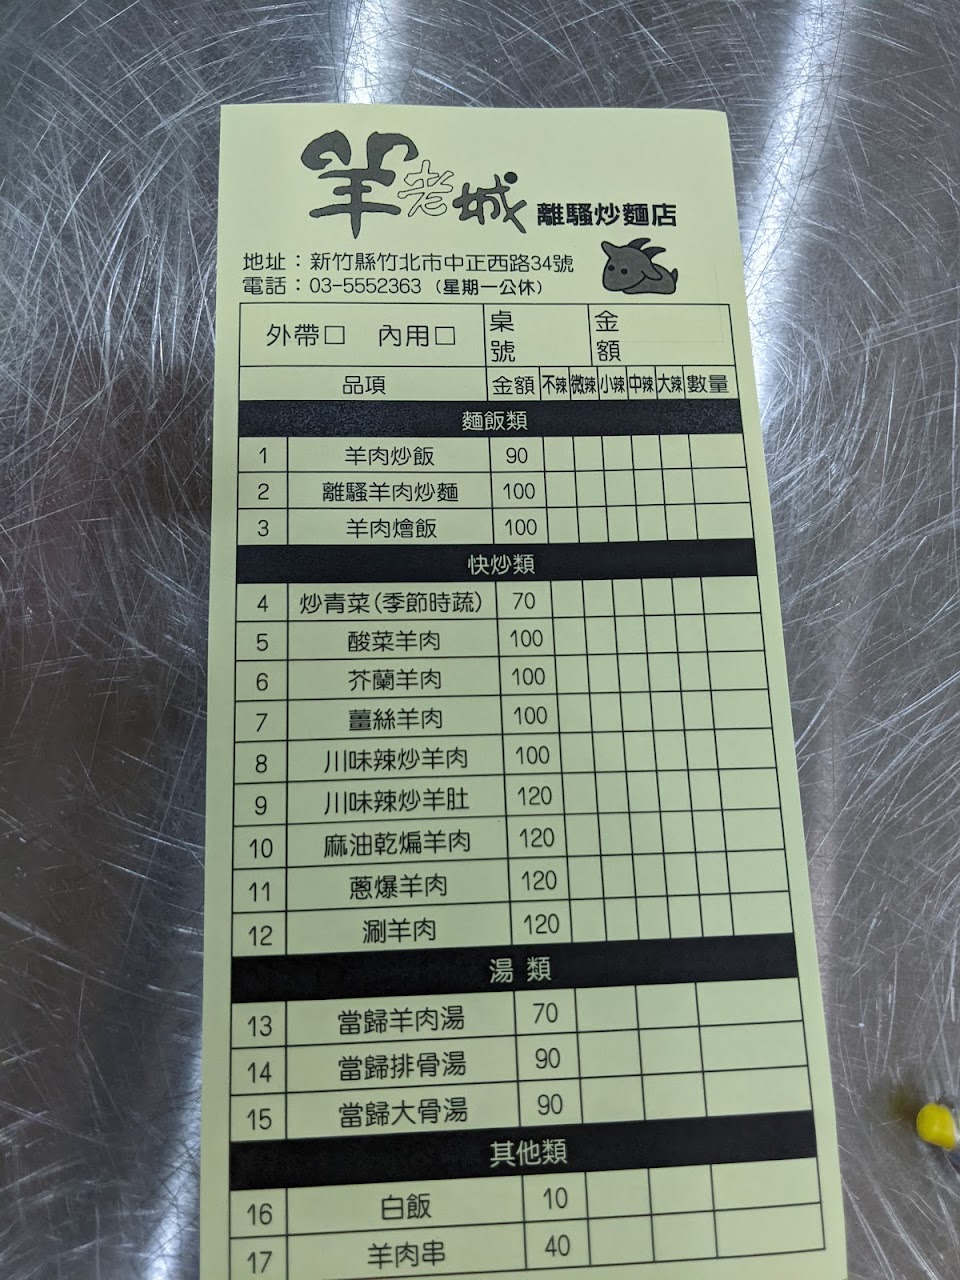 羊老城 離騷炒麵店
地址：新竹縣竹北市中正西路34號
電話：03-5552363（星期一公休）
外帶□ 內用□ 桌號 金額
品項 金額 不辣 微辣 小辣 中辣 大辣 數量
麵飯類
1 羊肉炒飯 90
2 離騷羊肉炒麵 100
3 羊肉燴飯 100
快炒類
4 炒青菜(季節時蔬) 70
5 酸菜羊肉 100
6 芥蘭羊肉 100
7 薑絲羊肉 100
8 川味辣炒羊肉 100
9 川味辣炒羊肚 120
10 麻油乾煸羊肉 120
11 蔥爆羊肉 120
12 涮羊肉 120
湯 類
13 當歸羊肉湯 70
14 當歸排骨湯 90
15 當歸大骨湯 90
其他類
16 白飯 10
17 羊肉串 40